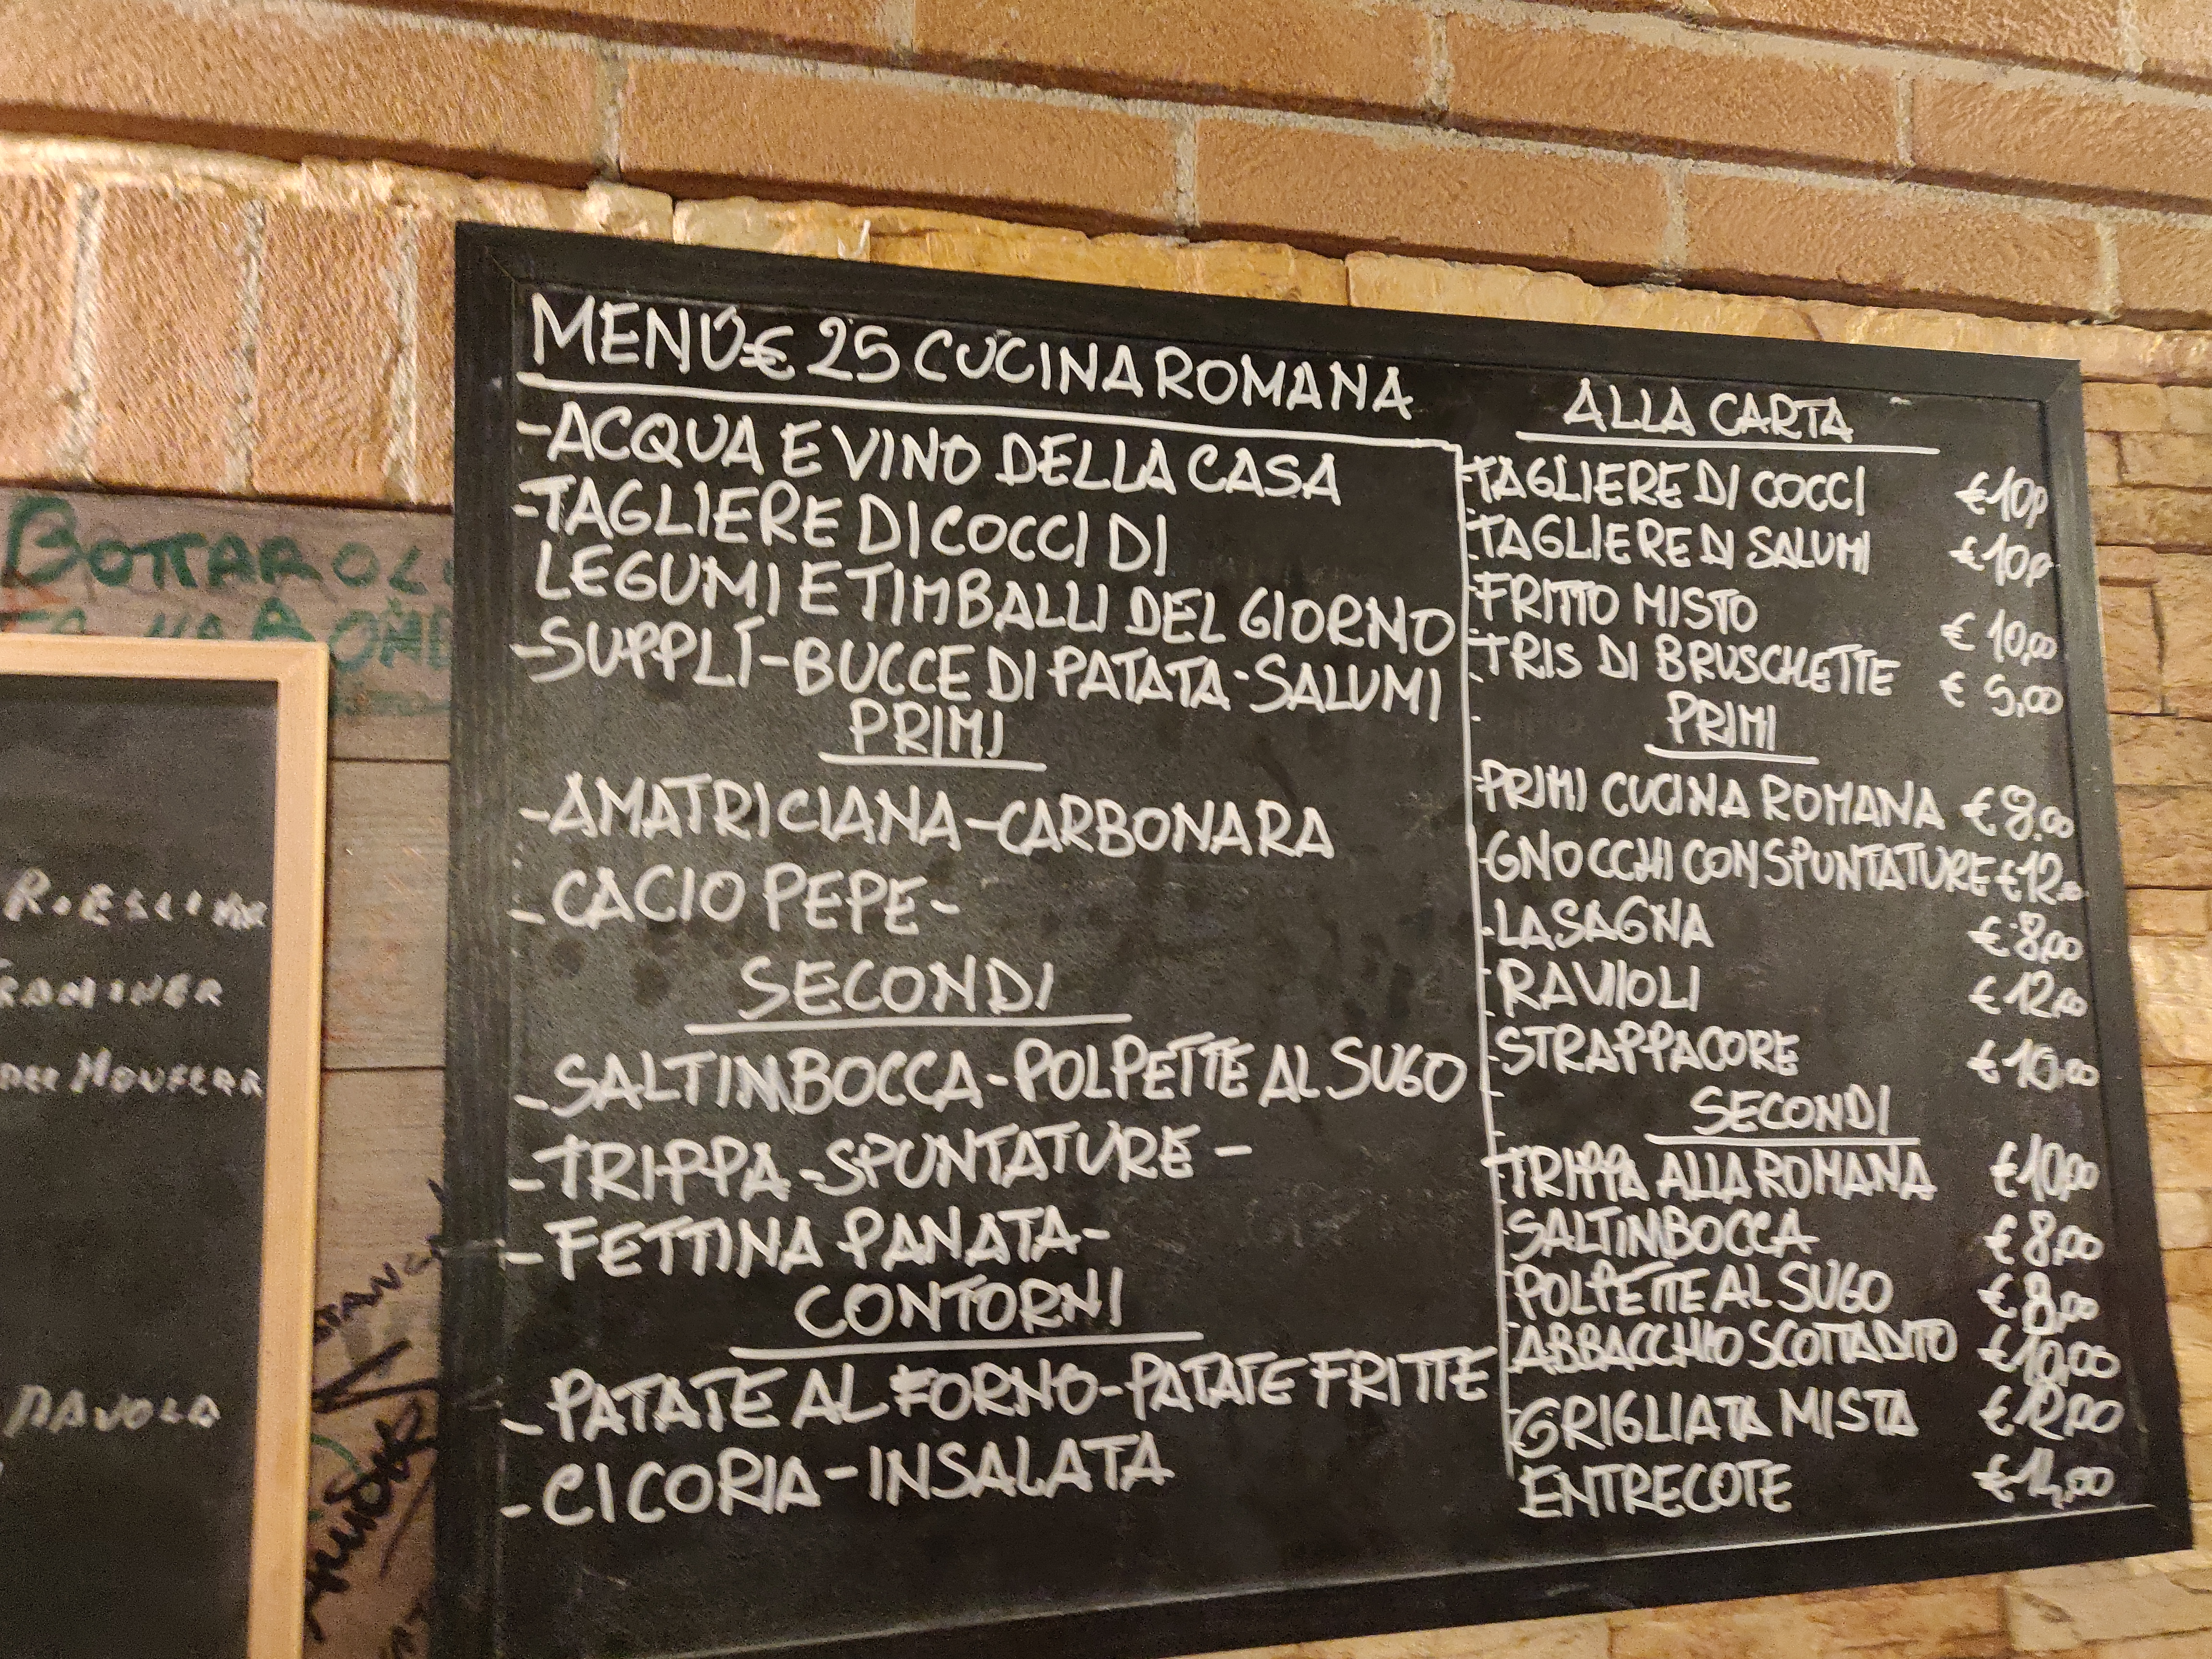 MENÙ € 25 CUCINA ROMANA
-ACQUA E VINO DELLA CASA
-TAGLIERE DI COCCI DI
LEGUMI E TIMBALLI DEL GIORNO
-SUPPLÌ-BUCCE DI PATATA-SALUMI
PRIMI
-AMATRICIANA-CARBONARA
-CACIO PEPE-
SECONDI
-SALTIMBOCCA-POLPETTE AL SUGO
-TRIPPA-SPUNTATURE-
-FETTINA PANATA-
CONTORNI
-PATATE AL FORNO-PATATE FRITTE
-CICORIA-INSALATA
ALLA CARTA
-TAGLIERE DI COCCI €10,0
-TAGLIERE DI SALUMI €10,0
-FRITTO MISTO € 10,00
-TRIS DI BRUSCHETTE € 5,00
PRIMI
-PRIMI CUCINA ROMANA €8,00
-GNOCCHI CON SPUNTATURE €12,00
-LASAGNA €8,00
-RAVIOLI €12,00
-STRAPPACORE €10,00
SECONDI
-TRIPPA ALLA ROMANA €10,00
-SALTIMBOCCA €8,00
-POLPETTE AL SUGO €8,00
-ABBACCHIO SCOTTADITO €10,00
-GRIGLIATA MISTA €12,00
ENTRECOTE €14,00